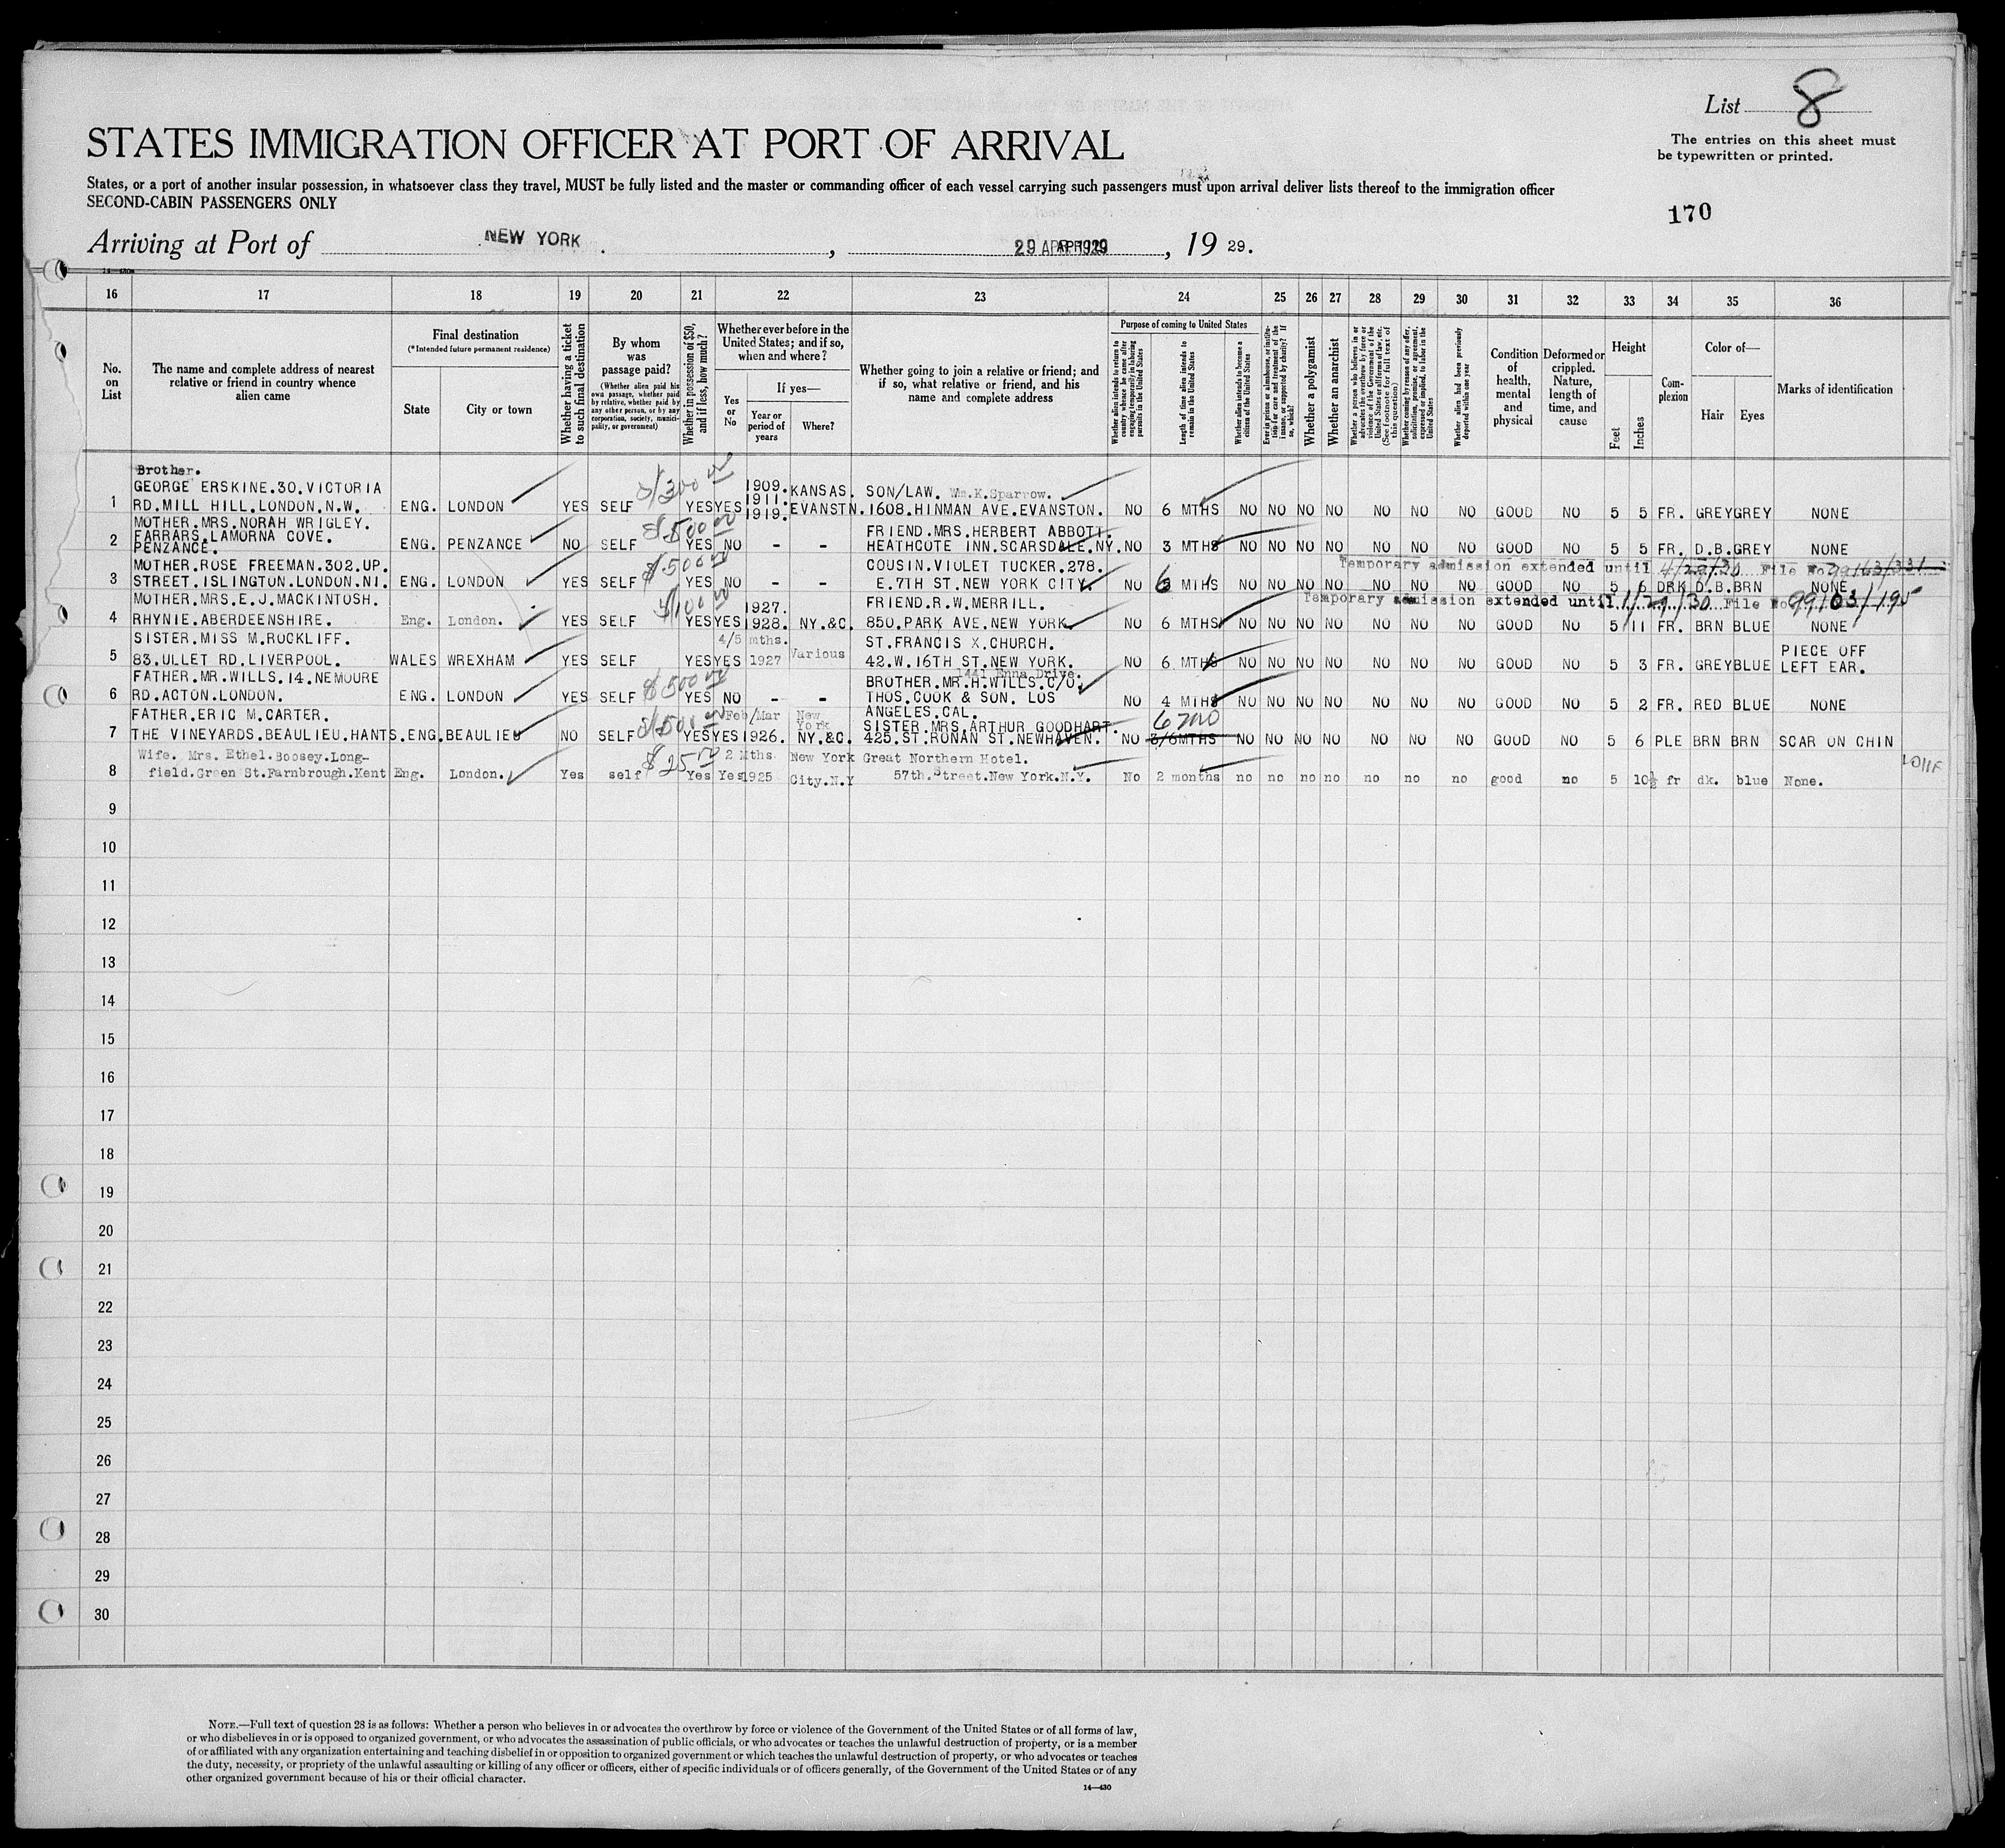 List 8
The entries on this sheet must
be typewritten or printed.
STATES IMMIGRATION OFFICER AT PORT OF ARRIVAL
States, or a port of another insular possession, in whatsoever class they travel, MUST be fully listed and the master or commanding officer of each vessel carrying such passengers must upon arrival deliver lists thereof to the immigration officer
SECOND-CABIN PASSENGERS ONLY
170
Arriving at Port of NEW YORK , 29 APR 1929 , 19 29.
16 17 18 19 20 21 22 23 24 25 26 27 28 29 30 31 32 33 34 35 36
No. on List
The name and complete address of nearest relative or friend in country whence alien came
Final destination
(*Intended future permanent residence)
State
City or town
Whether having a ticket to such final destination
By whom was passage paid?
(Whether alien paid his own passage, whether paid by relative, whether paid by any other person, or by any corporation, society, municipality, or government)
Whether in possession of $50, and if less, how much?
Whether ever before in the United States; and if so, when and where?
Yes or No
If yes—
Year or period of years
Where?
Whether going to join a relative or friend; and if so, what relative or friend, and his name and complete address
Purpose of coming to United States
Whether alien intends to return to country whence he came after engaging temporarily in laboring pursuits in the United States
Length of time alien intends to remain in the United States
Whether alien intends to become a citizen of the United States
Ever in prison or almshouse, or institution for care and treatment of the insane, or supported by charity? If so, which?
Whether a polygamist
Whether an anarchist
Whether a person who believes in or advocates the overthrow by force or violence of the Government of the United States or all forms of law, etc. (See footnote for full text of this question)
Whether coming by reason of any offer, solicitation, promise, or agreement, expressed or implied, to labor in the United States
Whether alien had been previously deported within one year
Condition of health, mental and physical
Deformed or crippled. Nature, length of time, and cause
Height
Feet
Inches
Complexion
Color of—
Hair
Eyes
Marks of identification
1 Brother. GEORGE ERSKINE.30.VICTORIA RD.MILL HILL.LONDON.N.W. ENG. LONDON YES SELF $/300 00 YES YES 1909. 1911. 1919. KANSAS. EVANSTN. SON/LAW. Wm.K.Sparrow. 1608.HINMAN AVE.EVANSTON. NO 6 MTHS NO NO NO NO NO NO NO GOOD NO 5 5 FR. GREY GREY NONE
2 MOTHER.MRS.NORAH WRIGLEY. FARRARS.LAMORNA COVE. PENZANCE. ENG. PENZANCE NO SELF $500 00 YES NO - - FRIEND.MRS.HERBERT ABBOTT. HEATHCOTE INN.SCARSDALE.NY. NO 3 MTHS NO NO NO NO NO NO NO GOOD NO 5 5 FR. D.B. GREY NONE
Temporary admission extended until 4/28/30 File No. 99163/331
3 MOTHER.ROSE FREEMAN.302.UP. STREET.ISLINGTON.LONDON.N1. ENG. LONDON YES SELF $500 00 YES NO - - COUSIN.VIOLET TUCKER.278. E.7TH ST.NEW YORK CITY. NO 6 MTHS NO NO NO NO NO NO NO GOOD NO 5 6 DRK D.B. BRN NONE
Temporary admission extended until 1/29/30 File No 99103/195
4 MOTHER.MRS.E.J.MACKINTOSH. RHYNIE.ABERDEENSHIRE. Eng. London. YES SELF $/100 00 YES YES 1927. 1928. NY.&C. FRIEND.R.W.MERRILL. 850.PARK AVE.NEW YORK. NO 6 MTHS NO NO NO NO NO NO NO GOOD NO 5 11 FR. BRN BLUE NONE
5 SISTER.MISS M.ROCKLIFF. 83.ULLET RD.LIVERPOOL. WALES WREXHAM YES SELF YES YES 4/5 mths. 1927 Various ST.FRANCIS X.CHURCH. 42.W.16TH ST.NEW YORK. NO 6 MTHS NO NO NO NO NO NO NO GOOD NO 5 3 FR. GREY BLUE PIECE OFF LEFT EAR.
6 FATHER.MR.WILLS.14.NEMOURE RD.ACTON.LONDON. ENG. LONDON YES SELF $500 00 YES NO - - 1441 Enna Drive. BROTHER.MR.H.WILLS.C/O. THOS.COOK & SON. LOS ANGELES.CAL. NO 4 MTHS NO NO NO NO NO NO NO GOOD NO 5 2 FR. RED BLUE NONE
7 FATHER.ERIC M.CARTER. THE VINEYARDS.BEAULIEU.HANTS. ENG. BEAULIEU NO SELF $/500 00 YES YES Feb/Mar 1926. New York NY.&C. SISTER.MRS.ARTHUR GOODHART. 425.ST.RONAN ST.NEWHAVEN. NO 3/6MTHS 6 mo NO NO NO NO NO NO NO GOOD NO 5 6 PLE BRN BRN SCAR ON CHIN
8 Wife. Mrs. Ethel.Boosey.Longfield.Green St.Farnbrough.Kent Eng. London. Yes self $25 00 Yes Yes 2 Mths 1925 New York City.N.Y Great Northern Hotel. 57th.Street.New York.N.Y. No 2 months no no no no no no no good no 5 10½ fr dk. blue None.
9
10
11
12
13
14
15
16
17
18
19
20
21
22
23
24
25
26
27
28
29
30
NOTE.—Full text of question 28 is as follows: Whether a person who believes in or advocates the overthrow by force or violence of the Government of the United States or of all forms of law,
or who disbelieves in or is opposed to organized government, or who advocates the assassination of public officials, or who advocates or teaches the unlawful destruction of property, or is a member
of or affiliated with any organization entertaining and teaching disbelief in or opposition to organized government or which teaches the unlawful destruction of property, or who advocates or teaches
the duty, necessity, or propriety of the unlawful assaulting or killing of any officer or officers, either of specific individuals or of officers generally, of the Government of the United States or of any
other organized government because of his or their official character.
14—430